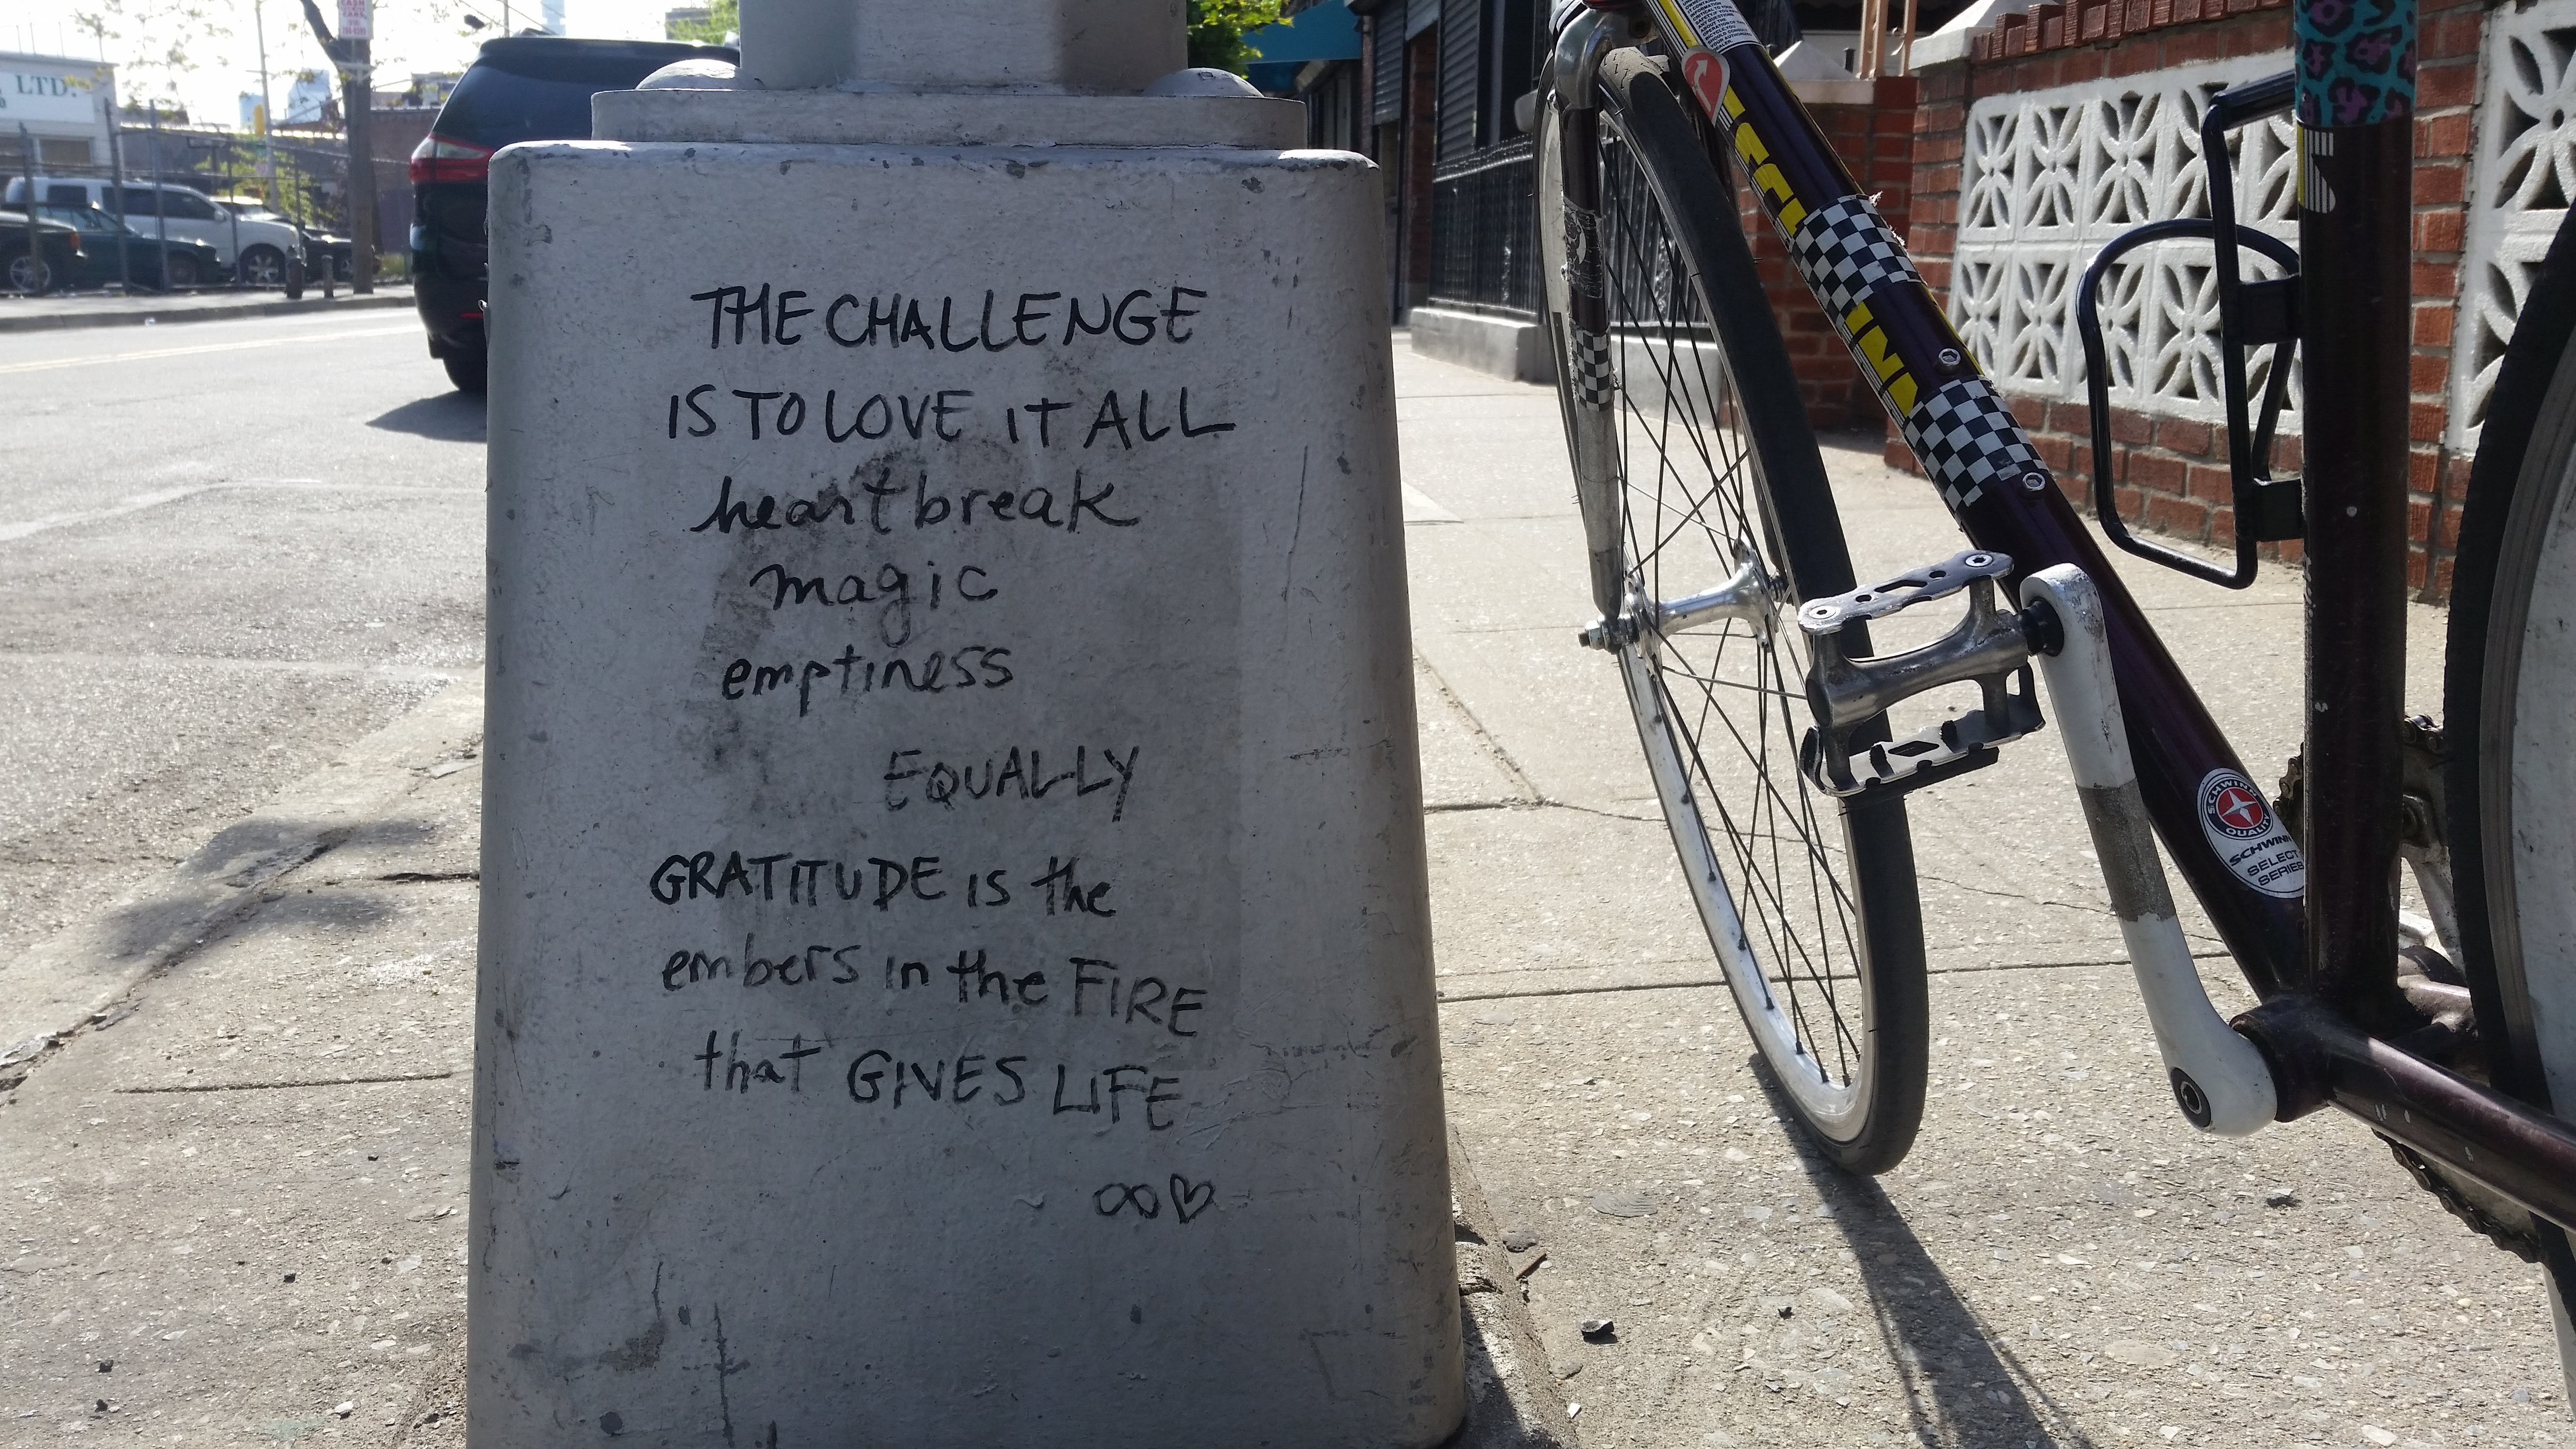 THE CHALLENGE
IS TO LOVE IT ALL
heartbreak
magic
emptiness
EQUALLY
GRATITUDE is the
embers in the FIRE
that GIVES LIFE
∞♡
LTD.
CASH
CARS
SCHWINN
SCHWINN
QUALITY
SCHWINN
SELECT
SERIES